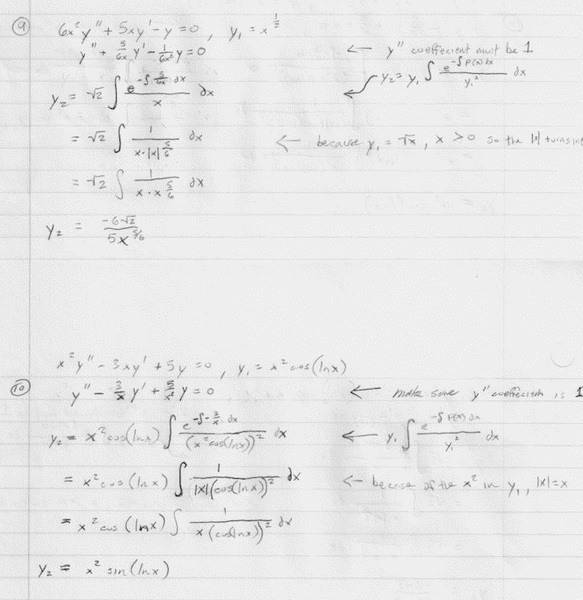 ⑨ 6x²y″ + 5xy′ - y = 0 , y₁ = x^(1/2)
y″ + 5/(6x) y′ - 1/(6x²) y = 0 ← y″ coefficient must be 1
y₂ = √2 ∫ e^(-∫ 5/(6x) dx) / x dx ← y₂ = y₁ ∫ e^(-∫P(x)dx) / y₁² dx
= √2 ∫ 1 / (x·|x|^(5/6)) dx ← because y₁ = √x, x > 0 so the |x| turns int
= √2 ∫ 1 / (x·x^(5/6)) dx
y₂ = -6√2 / (5x^(5/6))
x²y″ - 3xy′ + 5y = 0 , y₁ = x² cos(lnx)
⑩ y″ - 3/x y′ + 5/x² y = 0 ← make sure y″ coefficient is 1
y₂ = x² cos(lnx) ∫ e^(-∫-3/x dx) / (x² cos(lnx))² dx ← y₁ ∫ e^(-∫P(x)dx) / y₁² dx
= x² cos(lnx) ∫ 1 / (|x|(cos(lnx))²) dx ← because of the x² in y₁, |x|=x
= x² cos(lnx) ∫ 1 / (x(cos(lnx))²) dx
y₂ = x² sin(lnx)